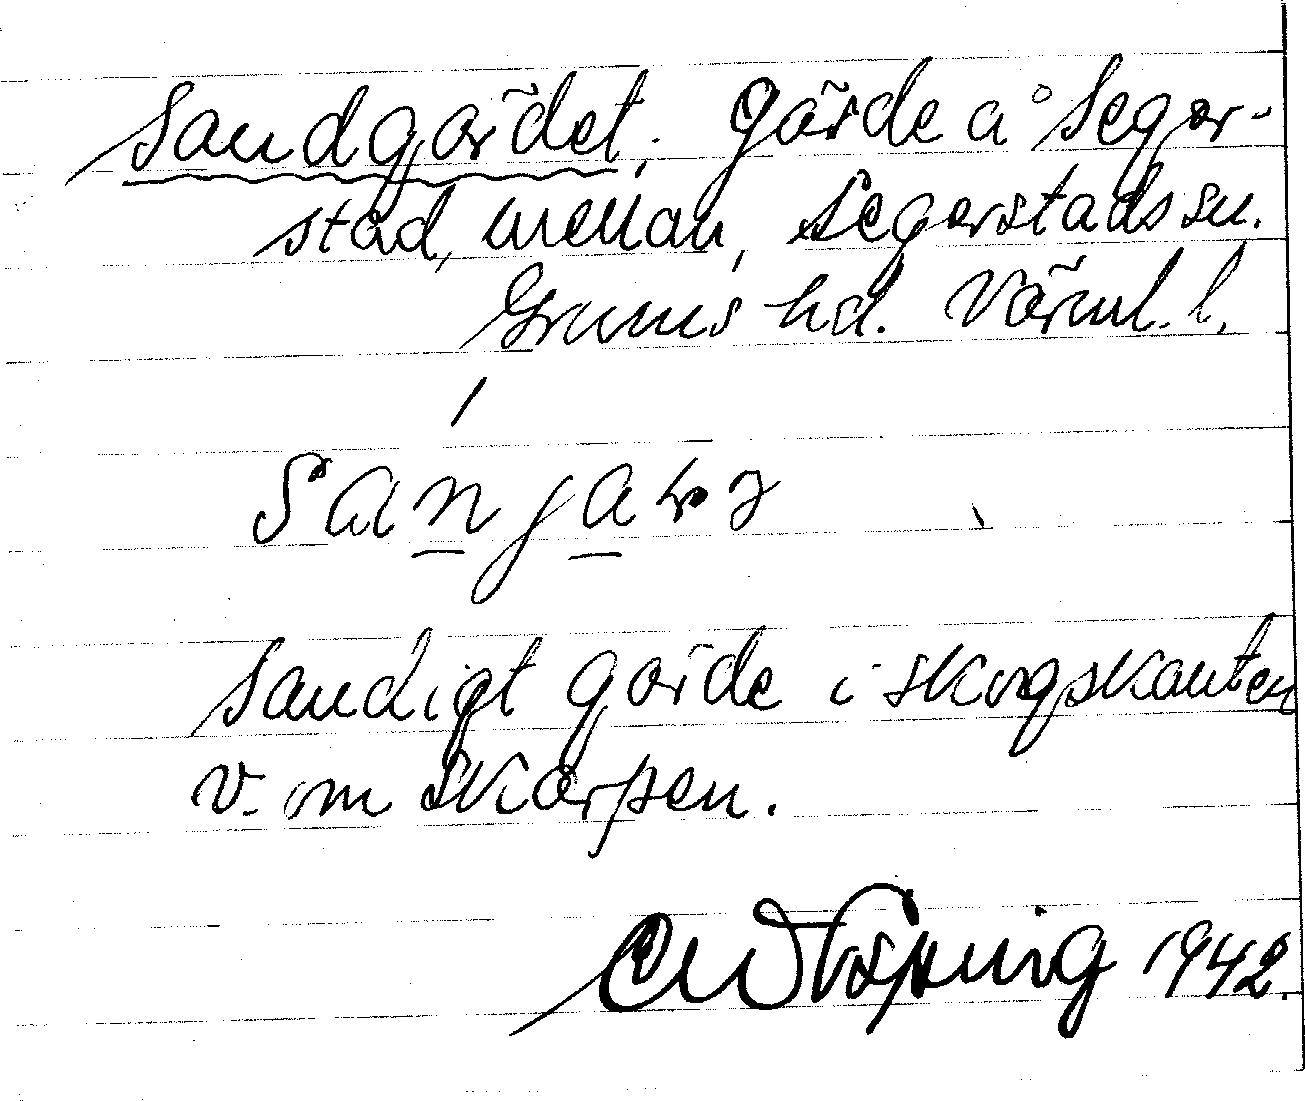 Sandgärdet, Gärde å Seger-
stad, mellan, Segerstads sn.
Grums hd. Värml. l.
Sandigt gärde i skogskanten
v. om Skärpen.
1942.